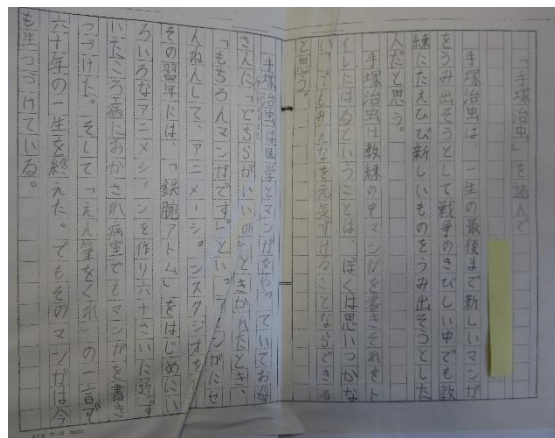 「手塚治虫」を読んで
手塚治虫は、一生の最後まで新しいマンガ
をうみ出そうとして戦争のきびしい中でも教
練にたえひび新しいものをうみ出そうとした
人だと思う。
手塚治虫は教練の中マンガを書きそれをト
イレにはるということは、ぼくは思いつかな
い。でもみんなを元気すけることならできる
と思う。
手塚治虫は医学とマンガをやっていてお母
さんに「どちらがいいの」ときかれたとき、
「もちろんマンガです。」といってマンガにせ
んねんして、アニメーションスタジオを
その翌年には、「鉄腕アトム」をはじめにい
ろいろなアニメションを作り六十さいに近ず
いたころ病におかされ病室でもマンガを書き
つづけた。そして「えん筆をくれ」の一言で
六十年の一生を終えた。でもそのマンガは今
も生つづけている。